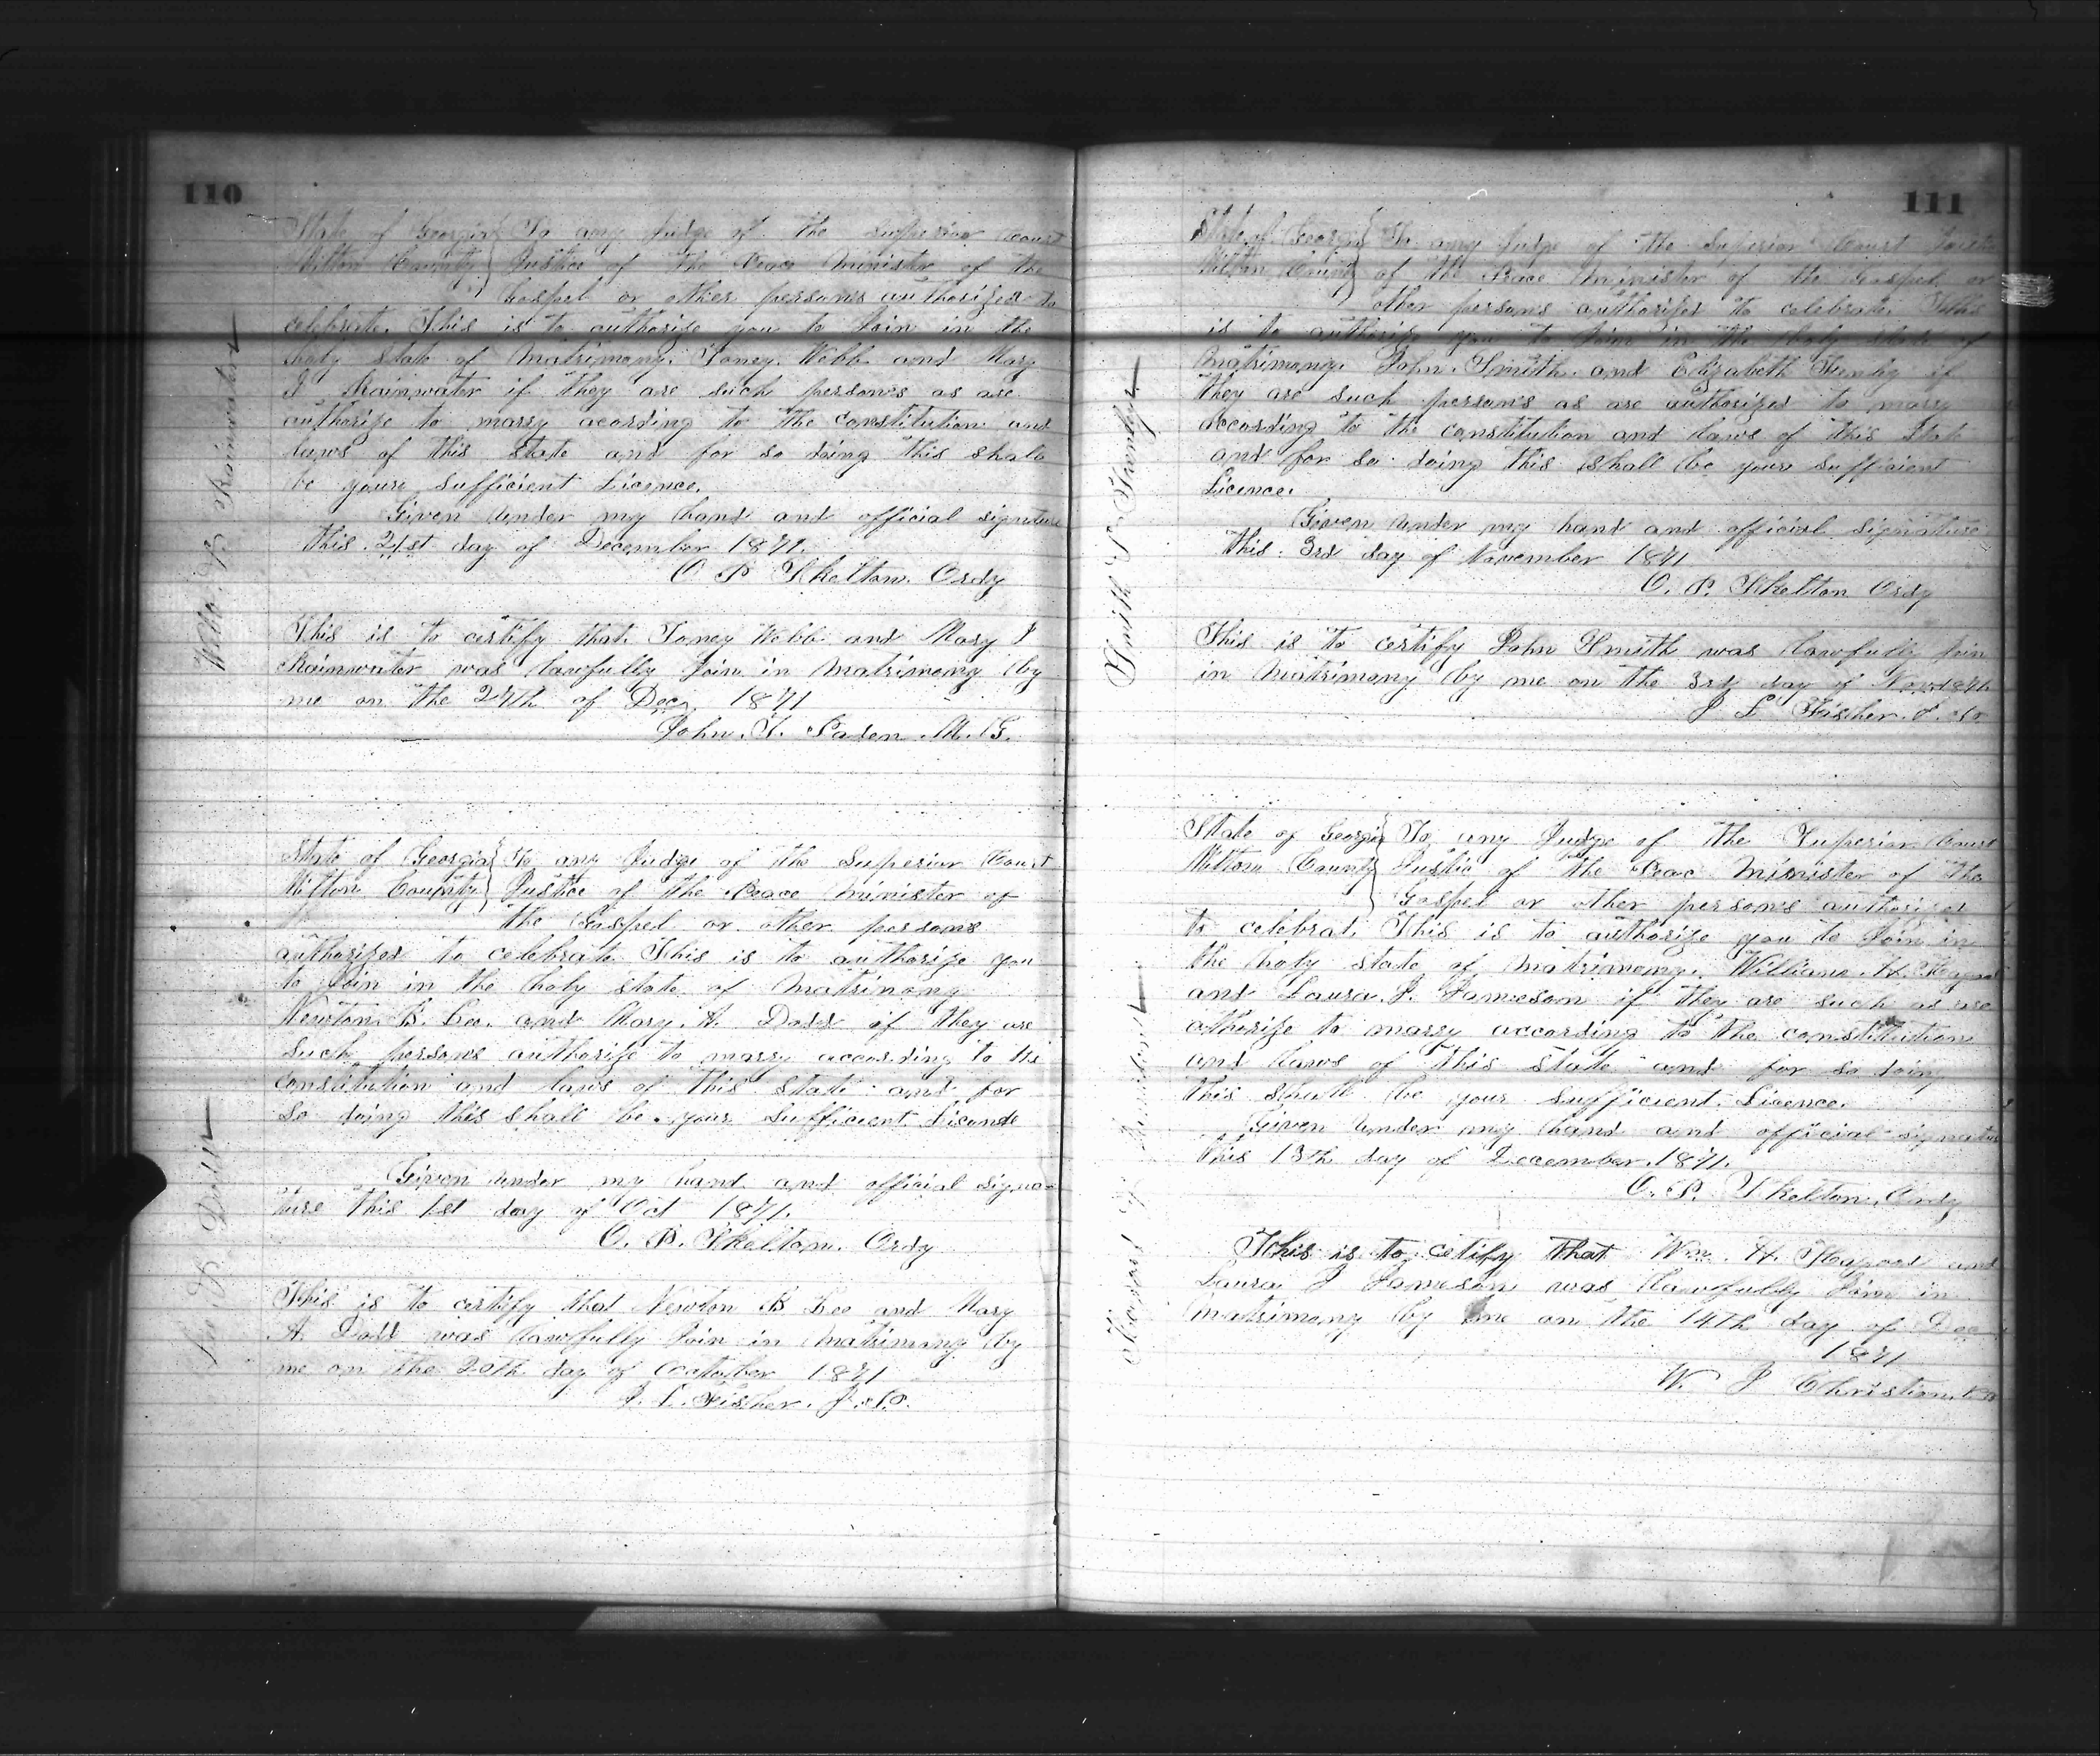 110
State of Georgia } To any Judge of the Superior Court
Milton County } Justice of the Peace Minister of the
Gospel or other persons authorized to
celebrate. This is to authorize you to Join in the
Holy State of Matrimony. Toney Webb and Mary
J Rainwater if they are such persons as are
authorize to marry acording to the constitution and
laws of this State and for so doing this shall
be your sufficient Licence.
Given under my hand and official signature
this 21st day of December 1871.
O P Skelton Ordy
This is to certify that Toney Webb and Mary J
Rainwater was lawfully Join in Matrimony by
me on the 24th of Dec. 1871
John. T. Paden M. G.
Rainwater
State of Georgia } To any Judge of the Superior Court
Milton County } Justice of the Peace Minister of
the Gospel or other persons
authorized to celebrate This is to authorize you
to Join in the holy state of Matrimony
Newton B. Leo. and Mary. A. Dodd if they are
such persons authorize to marry according to the
constitution and laws of this state and for
so doing this shall be your sufficient
Given under my hand and official signa-
ture this 1st day of Oct 1871.
O. P. Skelton. Ordy
This is to certify that Newton B Leo and Mary
A Dodd was lawfully Join in Matrimony by
me on the 20th day of 1871
J. L. Fisher. J. P.
111
State of Georgia } To any Judge of the Superior Court
Milton County } of the Peace Minister of the Gospel or
other persons authorized to celebrate This
is to authorize you to Join in the Holy State of
Matrimony. John. Smith. and Elizabeth if
they are such persons as are authorized to marry
according to the constitution and laws of this State
and for so doing this shall be your sufficient
Licence.
Given under my hand and official signature
this. 3rd day of November 1871
O. P. Skelton Ordy
This is to certify John Smith was lawfully Join
in Matrimony by me on the 3rd day of
J L Fisher J. P.
State of Georgia } To any Judge of the Superior Court
Milton County } Justic of the Peac Minister of the
Gospel or other persons authorized
to celebrat. This is to authorize you to Join in
the holy state of Matrimony. William. H.
and Laura. J. Jameson if they are such as are
athorize to marry according to the constitution
and laws of this state and for so doing
this shall be your sufficient. Licence.
Given under my hand and official signature
this 13th day of December. 1871.
O. P. Skelton, Ordy
This is to cetify that Wm. H. and
Laura J Jameson was lawfully Join in
matrimony by me on the 14th day of Dec
1871
W. J Christian